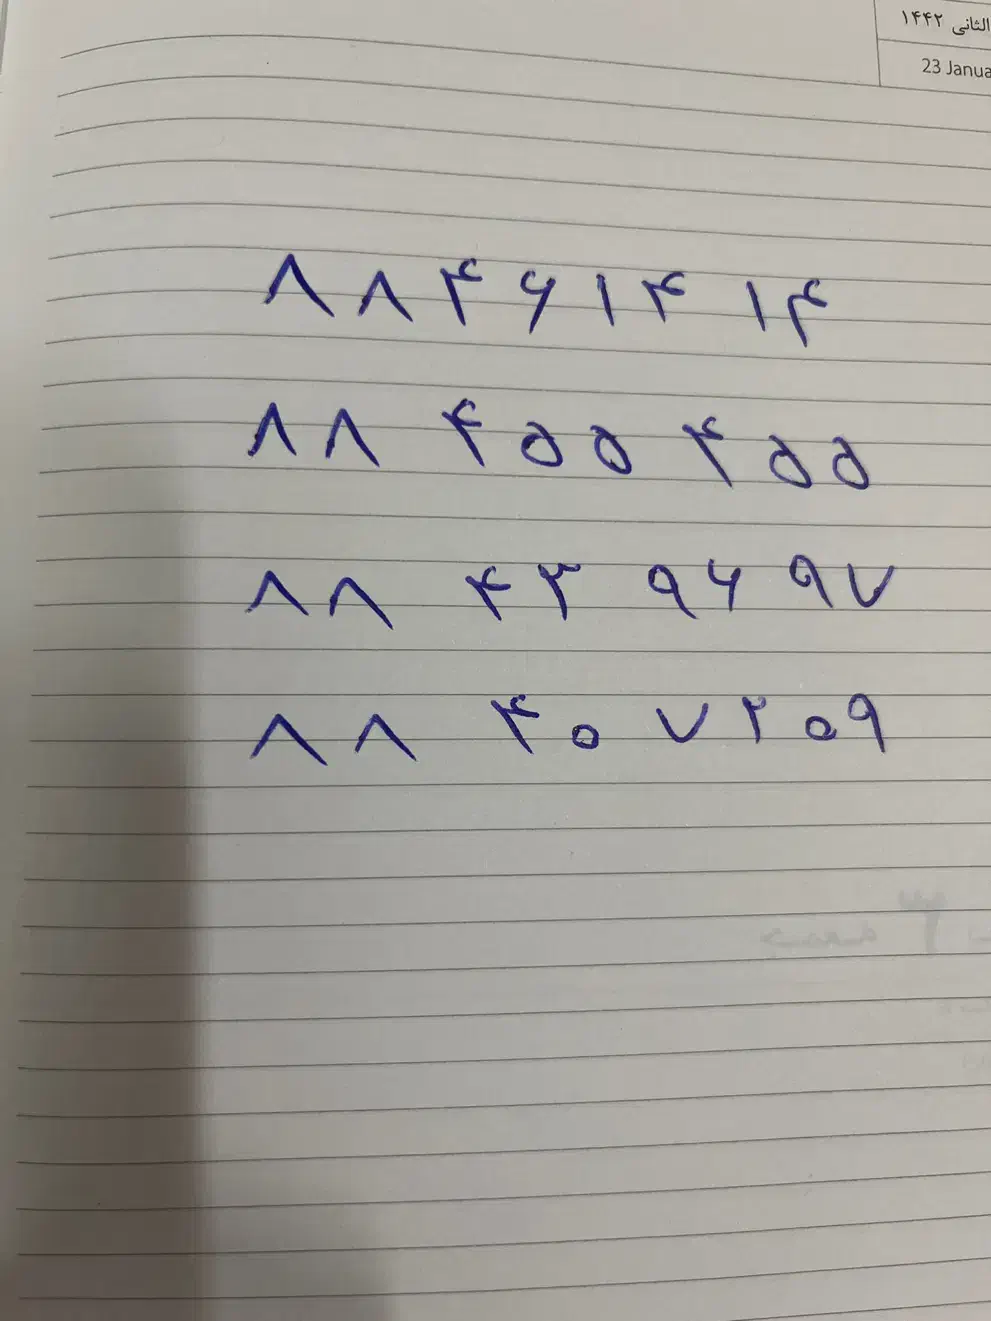 الثانی ۱۴۴۲
23 Janua
۸۸۴۶۱۴ ۱۴
۸۸ ۴۵۵ ۴۵۵
۸۸ ۴۳ ۹۶ ۹۷
۸۸ ۴۰ ۷۲۰۹